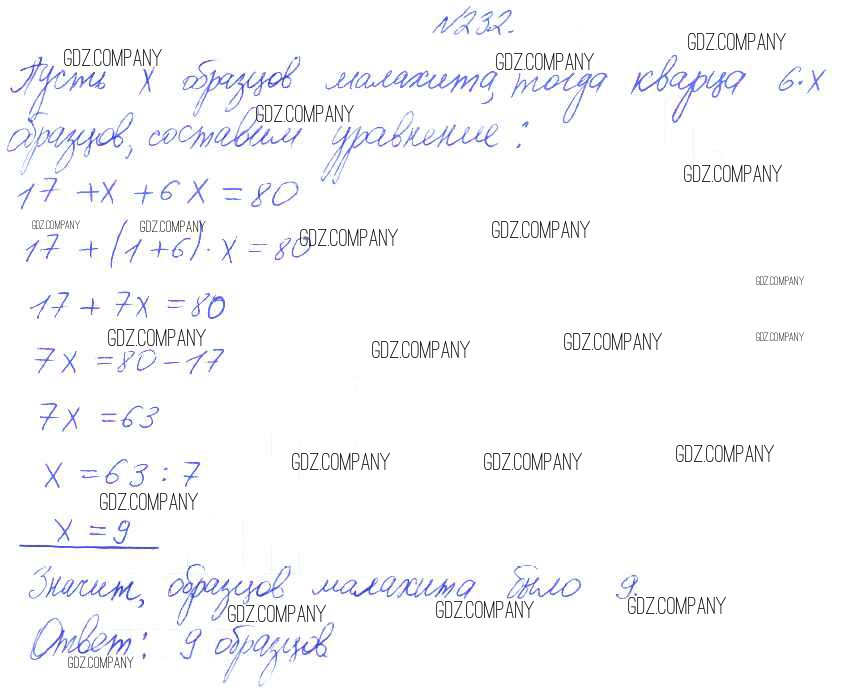 №232.
GDZ.COMPANY GDZ.COMPANY GDZ.COMPANY
Пусть x образцов малахита, тогда кварца 6·x
GDZ.COMPANY
образцов, составим уравнение:
GDZ.COMPANY
17 + x + 6x = 80
GDZ.COMPANY GDZ.COMPANY GDZ.COMPANY GDZ.COMPANY
17 + (1+6)·x = 80
GDZ.COMPANY
17 + 7x = 80
GDZ.COMPANY GDZ.COMPANY GDZ.COMPANY GDZ.COMPANY
7x = 80 - 17
7x = 63
GDZ.COMPANY GDZ.COMPANY GDZ.COMPANY
x = 63 : 7
GDZ.COMPANY
x = 9
Значит, образцов малахита было 9.
GDZ.COMPANY GDZ.COMPANY GDZ.COMPANY
Ответ: 9 образцов.
GDZ.COMPANY